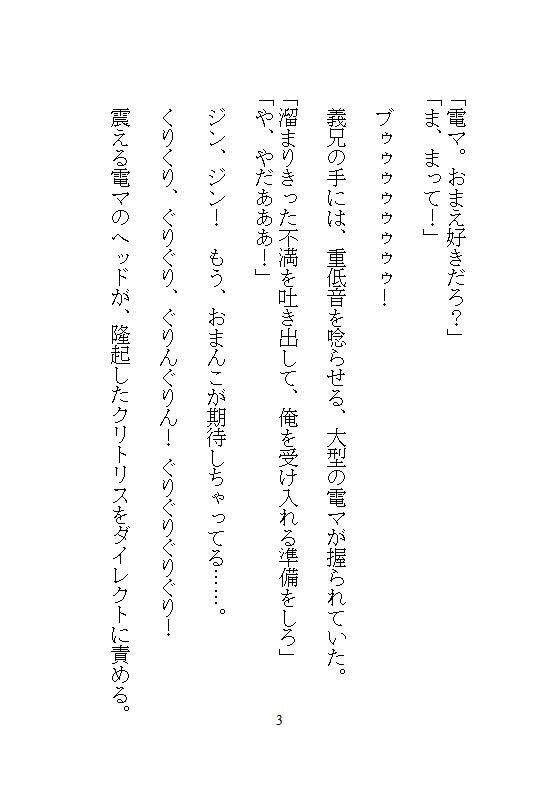 「電マ。おまえ好きだろ？」
「ま、まって！」
ブゥゥゥゥゥゥゥ！
義兄の手には、重低音を唸らせる、大型の電マが握られていた。
「溜まりきった不満を吐き出して、俺を受け入れる準備をしろ」
「や、やだぁぁぁ！」
ジン、ジン！　もう、おまんこが期待しちゃってる……。
くりくり、ぐりぐり、ぐりんぐりん！ ぐりぐりぐりぐり！
震える電マのヘッドが、隆起したクリトリスをダイレクトに責める。
3